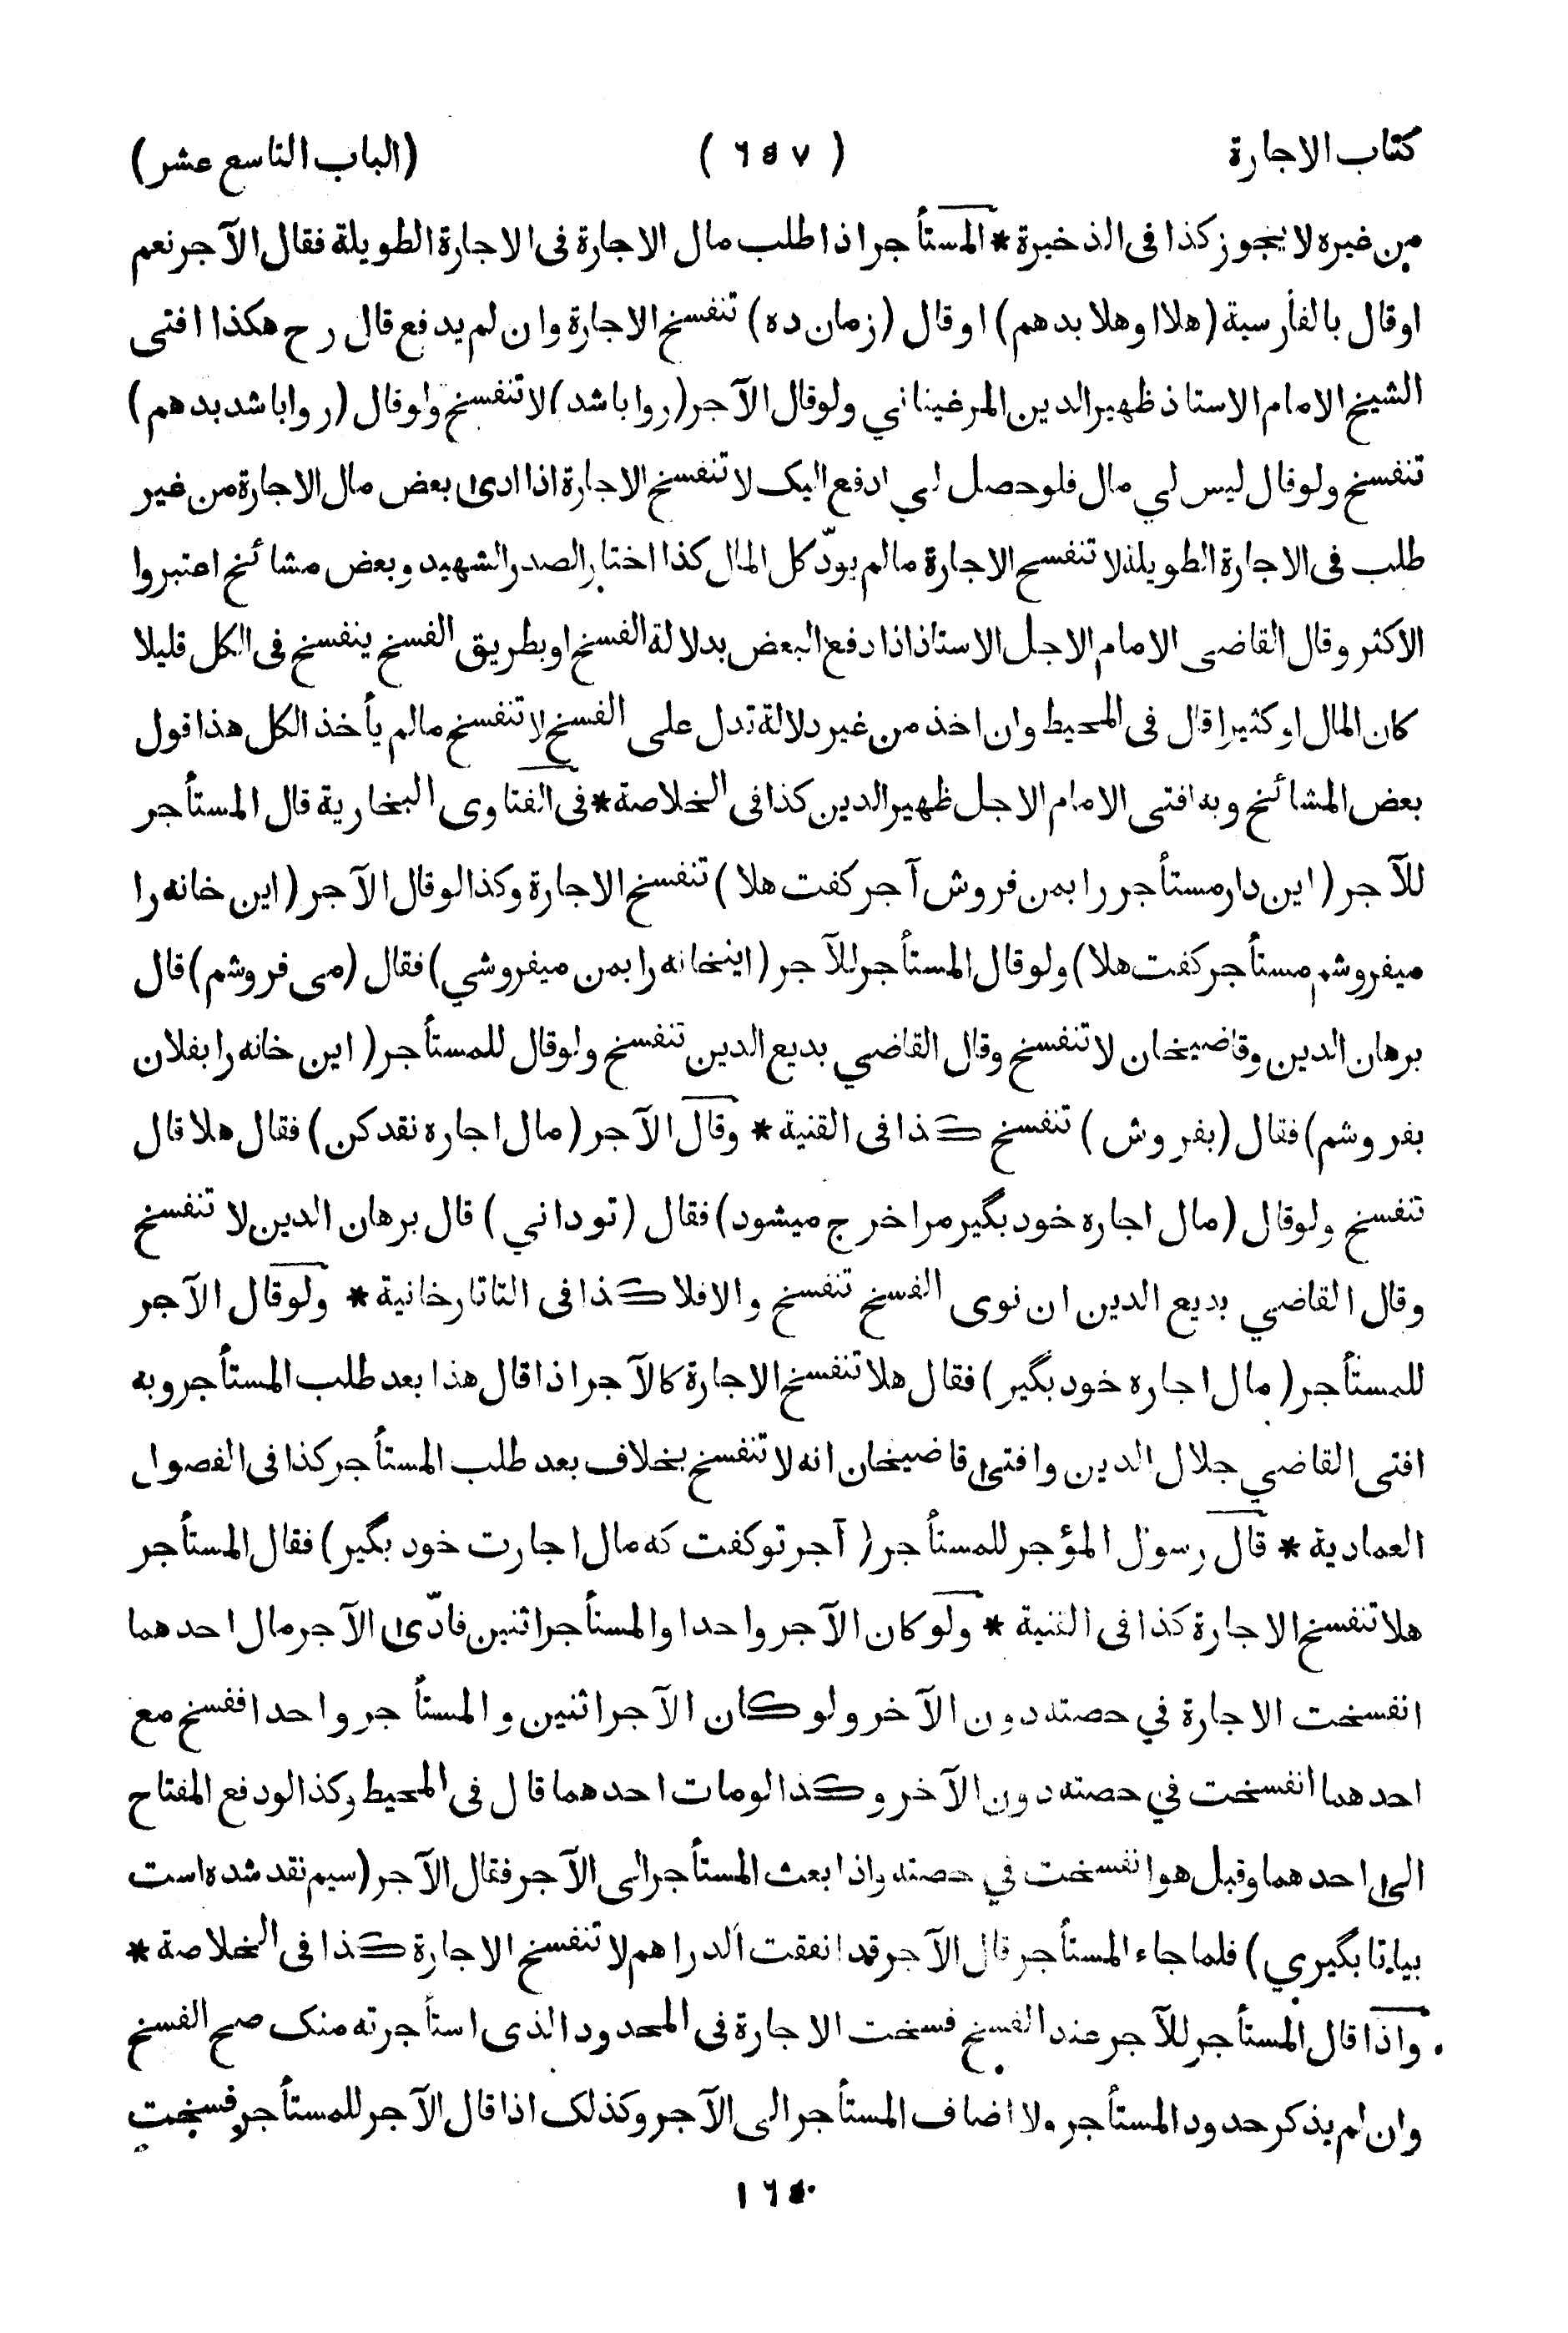 كتاب الاجارة (٦٥٧) (الباب التاسع عشر)
من غيره لا يجوز كذا فى الذخيرة * المستأجر اذا طلب مال الاجارة فى الاجارة الطويلة فقال الآجر نعم
او قال بالفارسية (هلا او هلا بدهم) او قال (زمان ده) تنفسخ الاجارة وان لم يدفع قال رح هكذا افتى
الشيخ الامام الاستاذ ظهير الدين المرغيناني ولو قال الآجر (روا باشد) لا تنفسخ ولو قال (روا باشد بدهم)
تنفسخ ولو قال ليس لي مال فلو حصل لي ادفع اليك لا تنفسخ الاجارة اذا ادى بعض مال الاجارة من غير
طلب فى الاجارة الطويلة لا تنفسخ الاجارة ما لم يودّ كل المال كذا اختار الصدر الشهيد وبعض مشائخ اعتبروا
الاكثر وقال القاضى الامام الاجل الاستاذ اذا دفع البعض بدلالة الفسخ او بطريق الفسخ ينفسخ فى الكل قليلا
كان المال او كثيرا قال فى المحيط وان اخذ من غير دلالة تدل على الفسخ لا تنفسخ ما لم يأخذ الكل هذا قول
بعض المشائخ وبه افتى الامام الاجل ظهير الدين كذا فى الخلاصة * فى الفتاوى البخارية قال المستأجر
للآجر (اين دار مستأجر را بمن فروش آجر كفت هلا) تنفسخ الاجارة وكذا لو قال الآجر (اين خانه را
ميفروشم مستأجر كفت هلا) ولو قال المستأجر للآجر (اينخانه را بمن ميفروشي) فقال (مى فروشم) قال
برهان الدين وقاضيخان لا تنفسخ وقال القاضي بديع الدين تنفسخ ولو قال للمستأجر (اين خانه را بفلان
بفروشم) فقال (بفروش) تنفسخ كذا فى القنية * وقال الآجر (مال اجاره نقد كن) فقال هلا قال
تنفسخ ولو قال (مال اجاره خود بگير مرا خرج ميشود) فقال (تو داني) قال برهان الدين لا تنفسخ
وقال القاضي بديع الدين ان نوى الفسخ تنفسخ والا فلا كذا فى التاتارخانية * ولو قال الآجر
للمستأجر (مال اجاره خود بگير) فقال هلا تنفسخ الاجارة كالآجر اذا قال هذا بعد طلب المستأجر وبه
افتى القاضي جلال الدين وافتى قاضيخان انه لا تنفسخ بخلاف بعد طلب المستأجر كذا فى الفصول
العمادية * قال رسول المؤجر للمستأجر (آجر تو كفت كه مال اجارت خود بگير) فقال المستأجر
هلا تنفسخ الاجارة كذا فى القنية * ولو كان الآجر واحدا والمستأجر اثنين فادّى الآجر مال احدهما
انفسخت الاجارة في حصته دون الآخر ولو كان الآجر اثنين والمستأجر واحدا ففسخ مع
احدهما انفسخت في حصته دون الآخر وكذا لو مات احدهما قال فى المحيط وكذا لو دفع المفتاح
الى احدهما وقبل هو انفسخت في حصته واذا بعث المستأجر الى الآجر فقال الآجر (سيم نقد شده است
بيا تا بگيري) فلما جاء المستأجر قال الآجر قد انفقت الدراهم لا تنفسخ الاجارة كذا فى الخلاصة *
واذا قال المستأجر للآجر عند الفسخ فسخت الاجارة فى المحدود الذى استأجرته منك صح الفسخ
وان لم يذكر حدود المستأجر ولا اضاف المستأجر الى الآجر وكذلك اذا قال الآجر للمستأجر فسخت
١٦٥